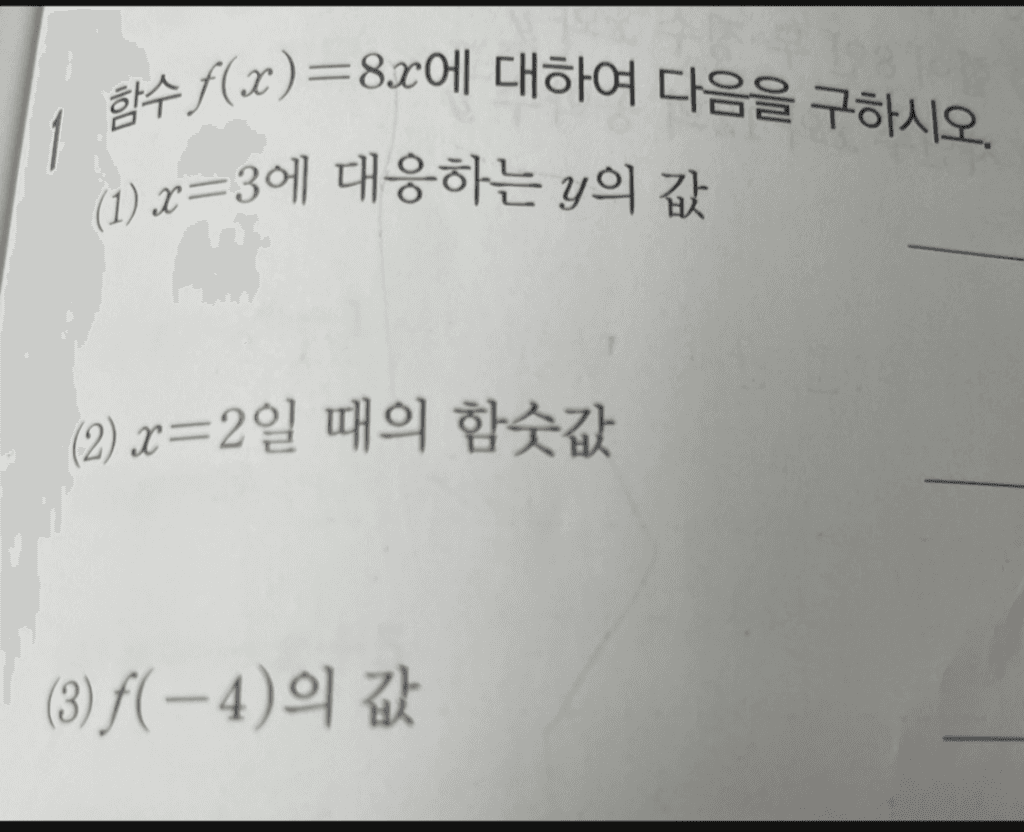 1 함수 f(x)=8x에 대하여 다음을 구하시오.
(1) x=3에 대응하는 y의 값
(2) x=2일 때의 함숫값
(3) f(-4)의 값